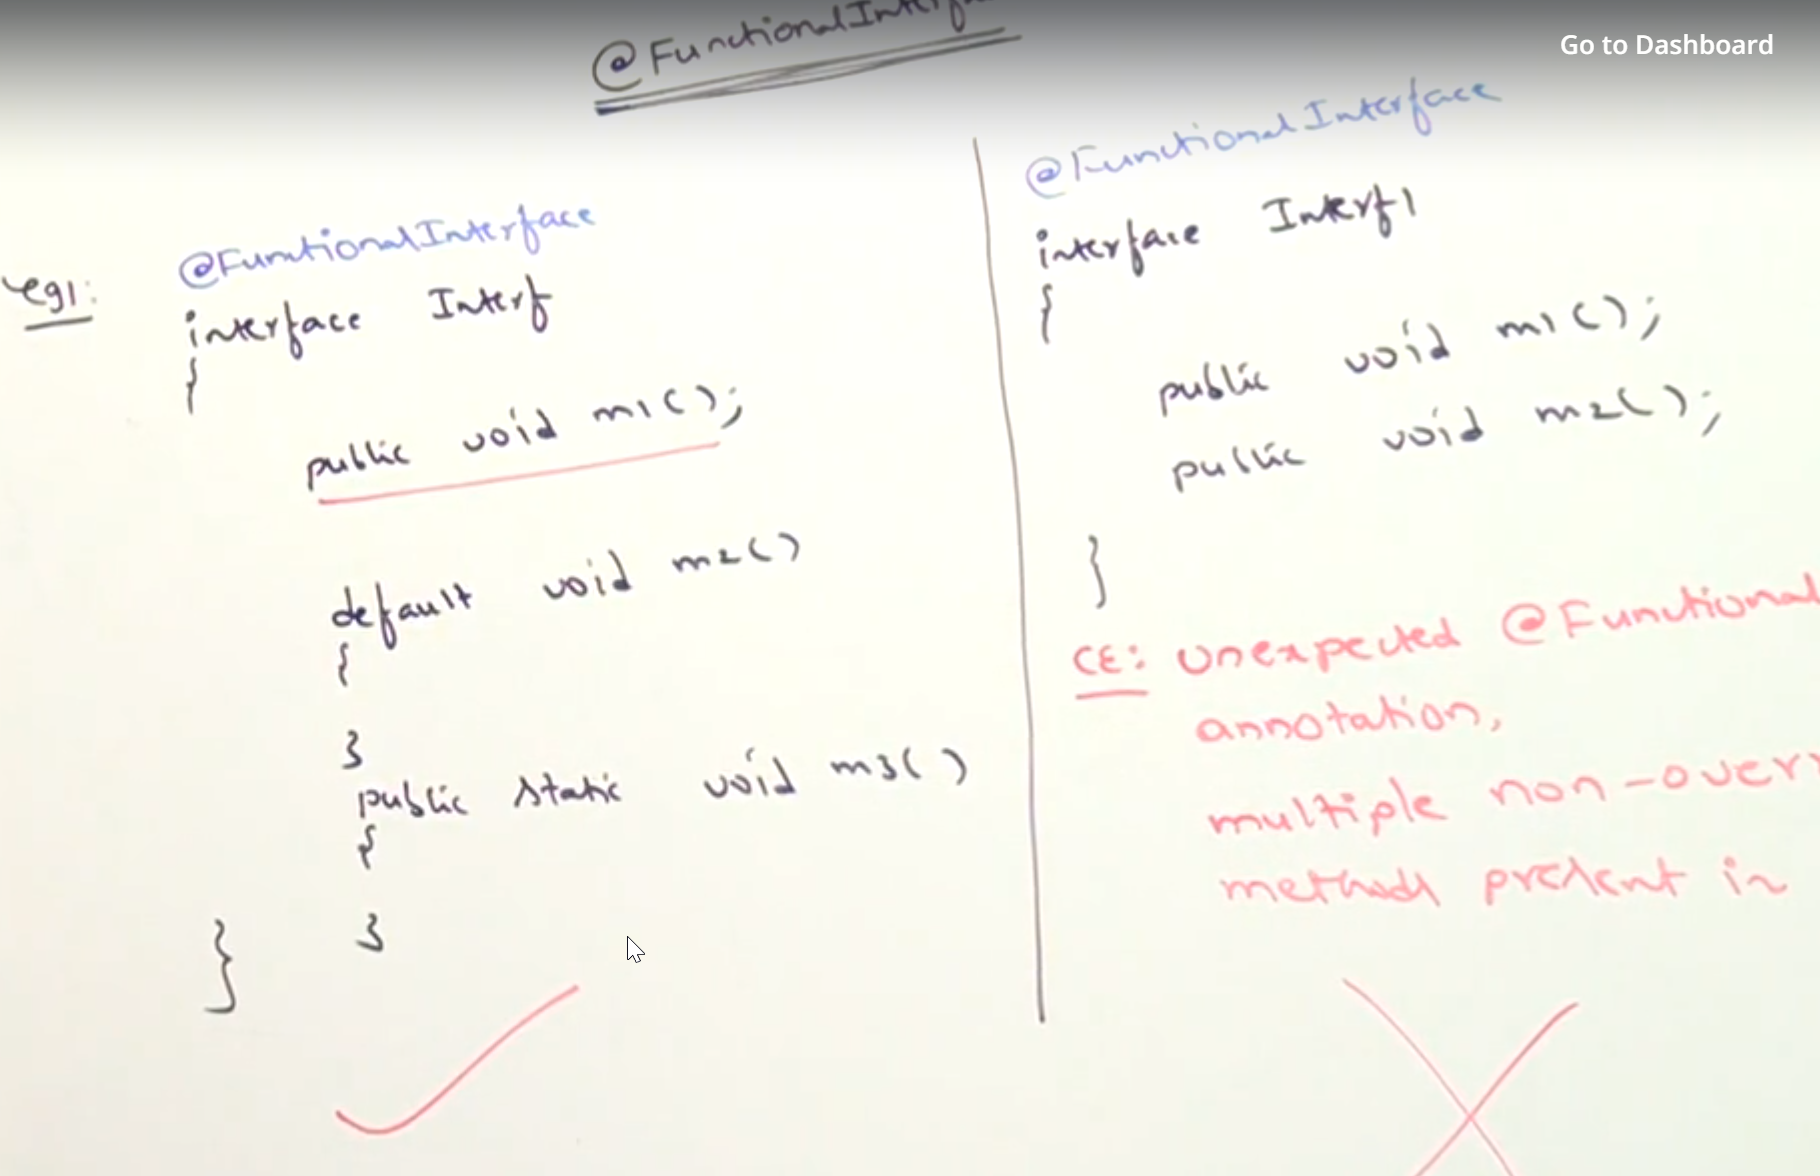 Go to Dashboard
@FunctionalInterf
eg1:
@FunctionalInterface
interface Interf
{
public void m1();
default void m2()
{
}
public static void m3()
{
}
}
@FunctionalInterface
interface Interf1
{
public void m1();
public void m2();
}
CE: unexpected @Functional
annotation,
multiple non-overr
methods present in